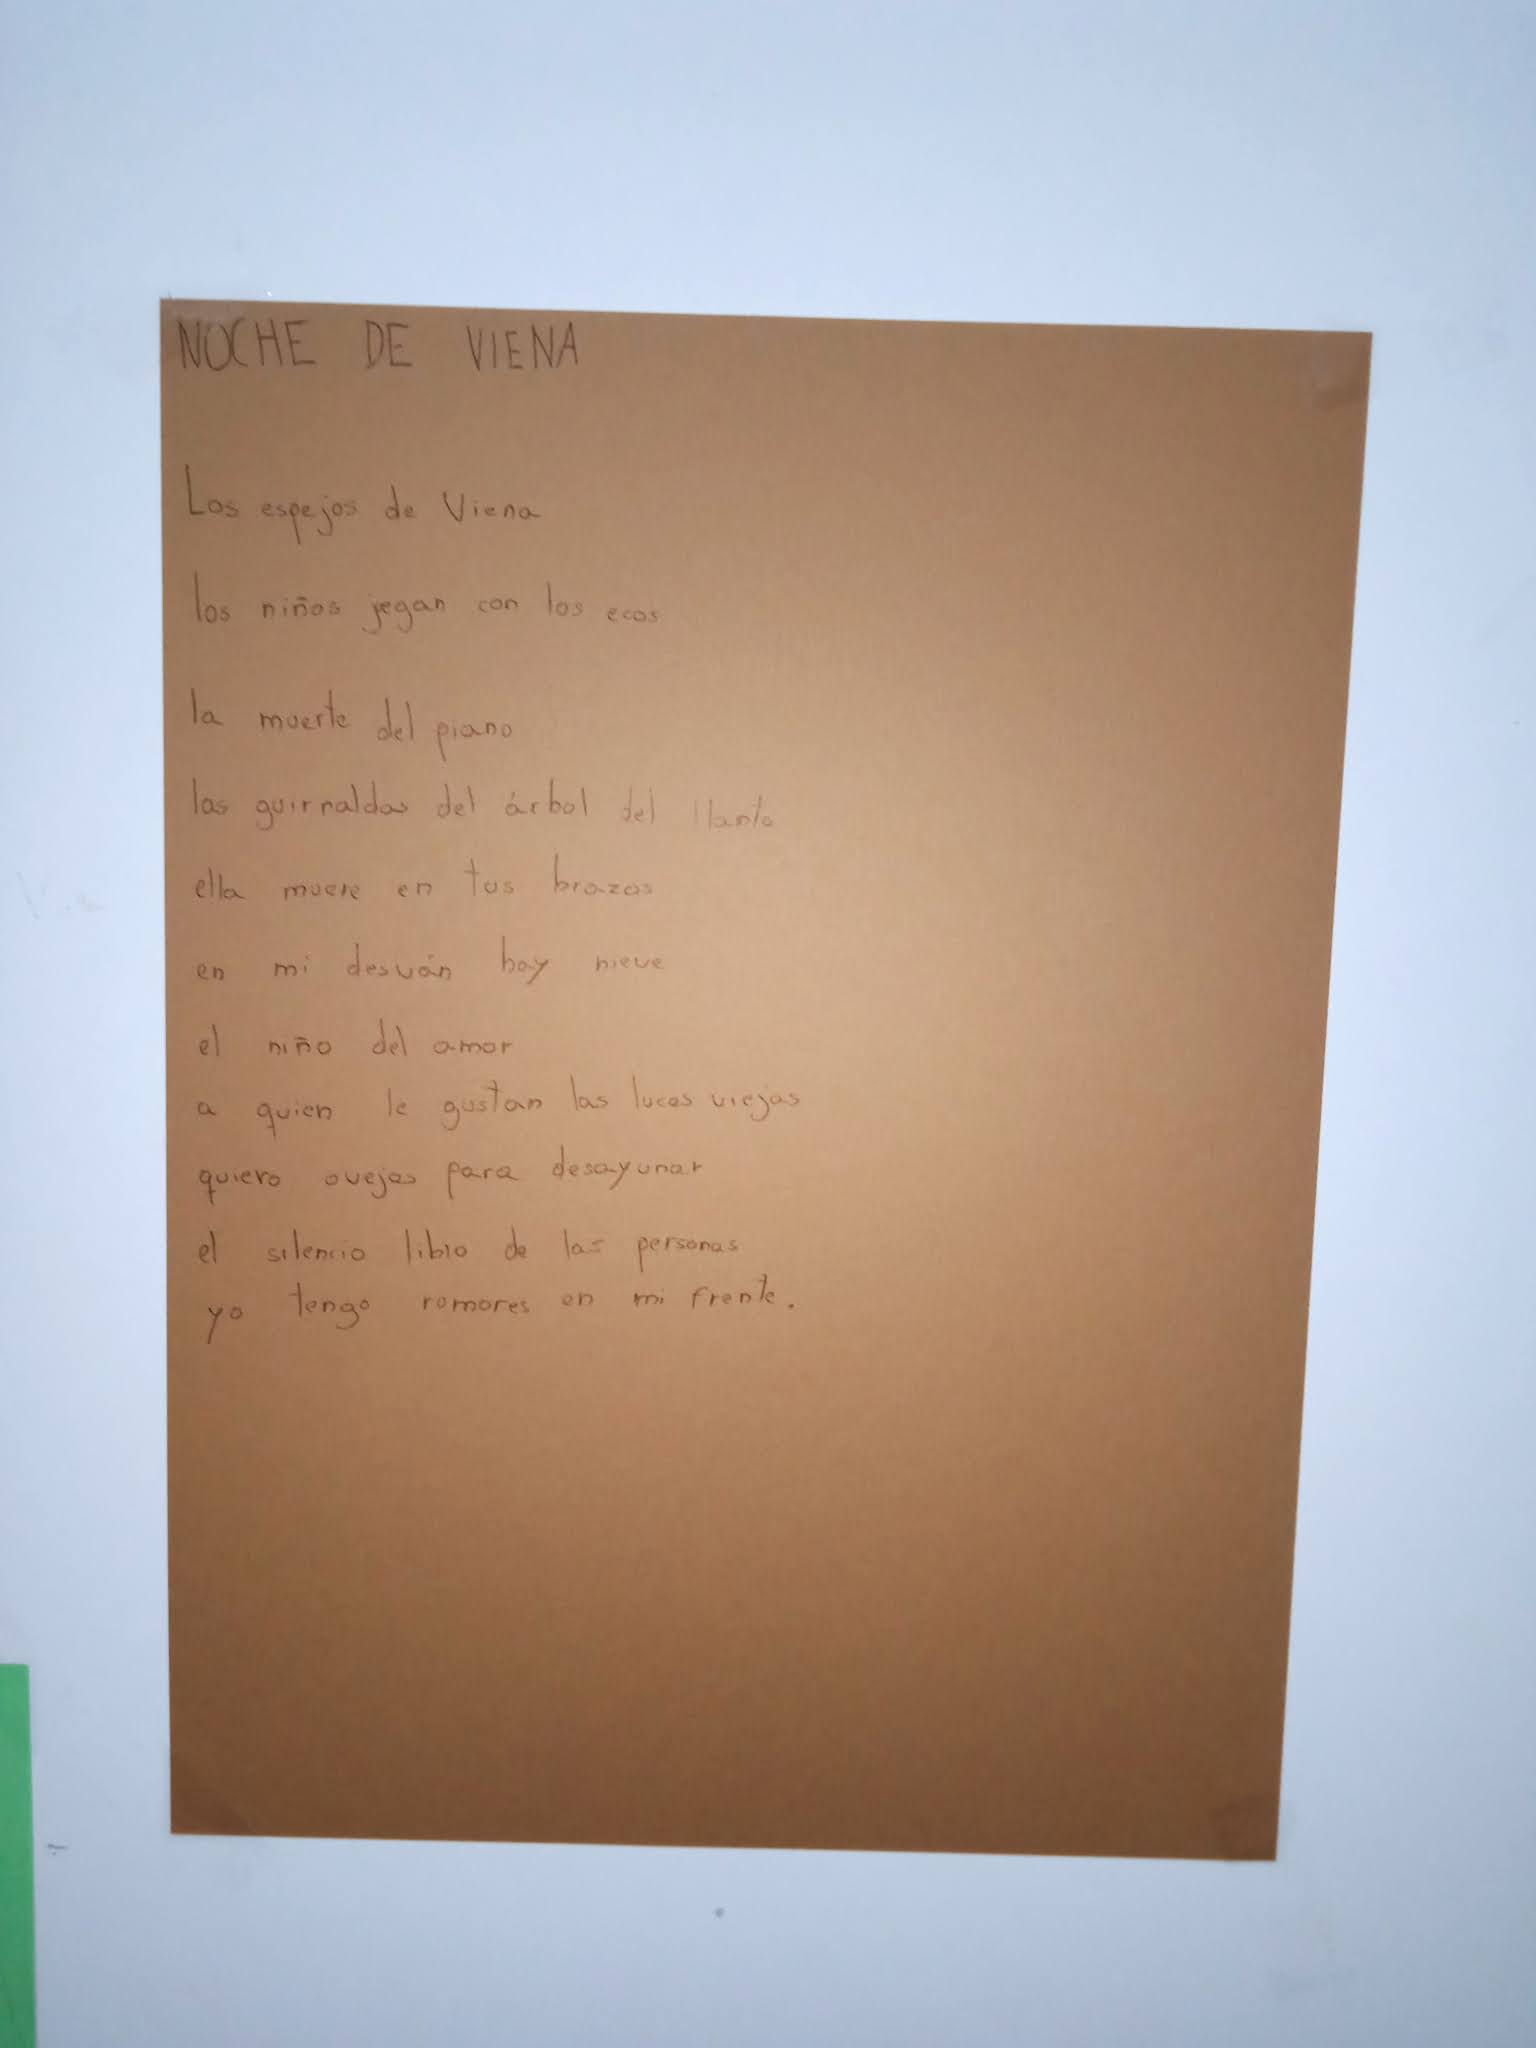 NOCHE DE VIENA
Los espejos de Viena
los niños jegan con los ecos
la muerte del piano
las guirnaldas del árbol del llanto
ella muere en tus brazos
en mi desván hay nieve
el niño del amor
a quien le gustan las luces viejas
quiero ovejas para desayunar
el silencio libio de las personas
yo tengo romores en mi frente.